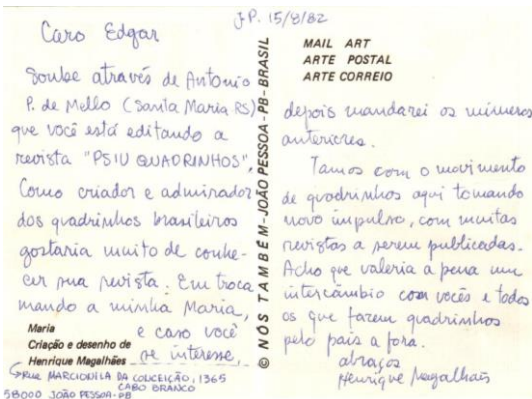 J.P. 15/8/82
Caro Edgar
Soube através de Antonio
P. de Mello (Santa Maria-RS)
que você está editando a
revista "PSIU QUADRINHOS",
Como criador e admirador
dos quadrinhos brasileiros
gostaria muito de conhe-
cer sua revista. Em troca
mando a minha Maria,
e caso você
se interesse,
Maria
Criação e desenho de
Henrique Magalhães
RUA MARCIONILA DA CONCEIÇÃO, 1365
CABO BRANCO
58000 JOÃO PESSOA-PB
© NÓS TAMBÉM-JOÃO PESSOA-PB-BRASIL
MAIL ART
ARTE POSTAL
ARTE CORREIO
depois mandarei os números
anteriores.
Tamos com o movimento
de quadrinhos aqui tomando
novo impulso, com muitas
revistas a serem publicadas.
Acho que valeria a pena um
intercâmbio com vocês e todos
os que fazem quadrinhos
pelo país a fora.
abraços
Henrique Magalhães